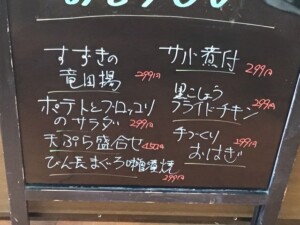 すずきの
竜田揚 299円
ポテトとブロッコリ
のサラダ 299円
天ぷら盛合せ 450円
びん長まぐろ味噌漬焼
299円
サバ煮付
299円
黒こしょう
フライドチキン 299円
手づくり
おはぎ 299円